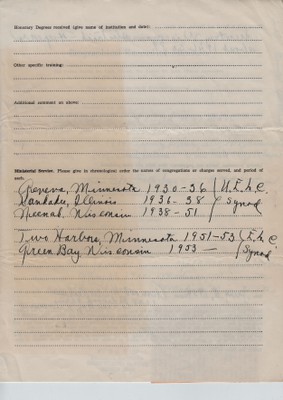 Honorary Degrees received (give name of institution and date):
Other specific training:
Additional comment as above:
Ministerial Service. Please give in chronological order the names of congregations or charges served, and period of
each.
Geneva, Minnesota 1930-36 U.E.L.C.
Kankakee, Illinois 1936-38 Synod
Neenah, Wisconsin 1938-51
Two Harbors, Minnesota 1951-53 E.L.C.
Green Bay Wisconsin 1953 — Synod